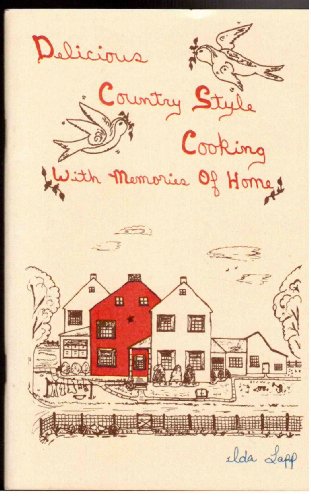 Delicious
Country Style
Cooking
With Memories Of Home
Ida Lapp